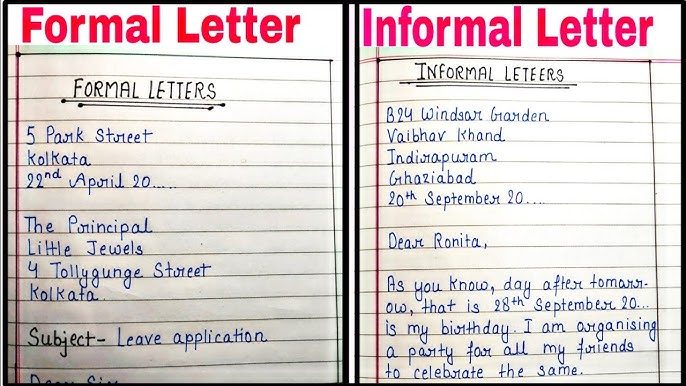 Formal Letter
FORMAL LETTERS
5 Park Street
Kolkata
22nd April 20.....
The Principal
Little Jewels
4 Tollygunge Street
Kolkata
Subject- Leave application
Informal Letter
INFORMAL LETEERS
B24 Windsar Garden
Vaibhav Khand
Indirapuram
Ghaziabad
20th September 20....
Dear Ronita,
As you know, day after tomarr-
ow, that is 28th September 20...
is my birthday. I am organising
a party for all my friends
to celebrate the same.